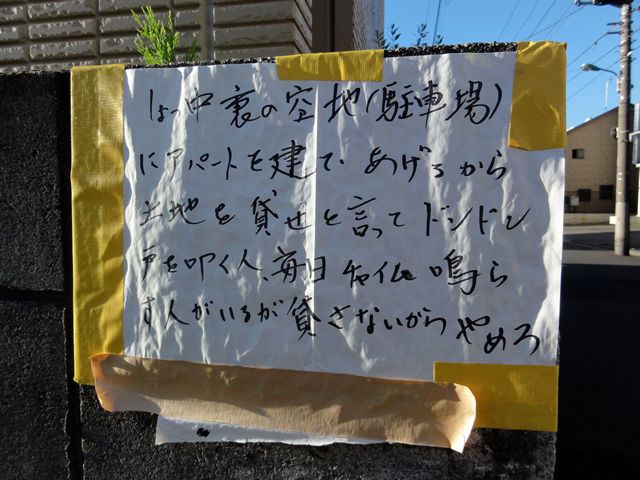 しょっ中裏の空地(駐車場)
にアパートを建て、あげるから
土地を貸せと言ってドンドン
戸を叩く人、毎日チャイム鳴ら
す人がいるが貸さないからやめろ